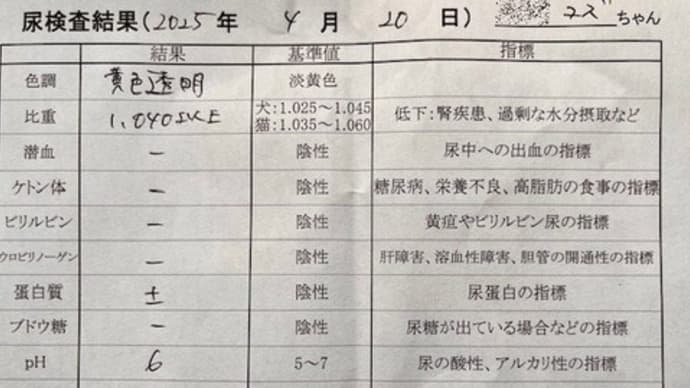 尿検査結果(2025年 4月 20日) コズちゃん
結果 基準値 指標
色調 黄色透明 淡黄色
比重 1.040以上 犬:1.025~1.045 猫:1.035~1.060 低下:腎疾患、過剰な水分摂取など
潜血 − 陰性 尿中への出血の指標
ケトン体 − 陰性 糖尿病、栄養不良、高脂肪の食事の指標
ビリルビン − 陰性 黄疸やビリルビン尿の指標
ウロビリノーゲン − 陰性 肝障害、溶血性障害、胆管の開通性の指標
蛋白質 ± 陰性 尿蛋白の指標
ブドウ糖 − 陰性 尿糖が出ている場合などの指標
pH 6 5~7 尿の酸性、アルカリ性の指標